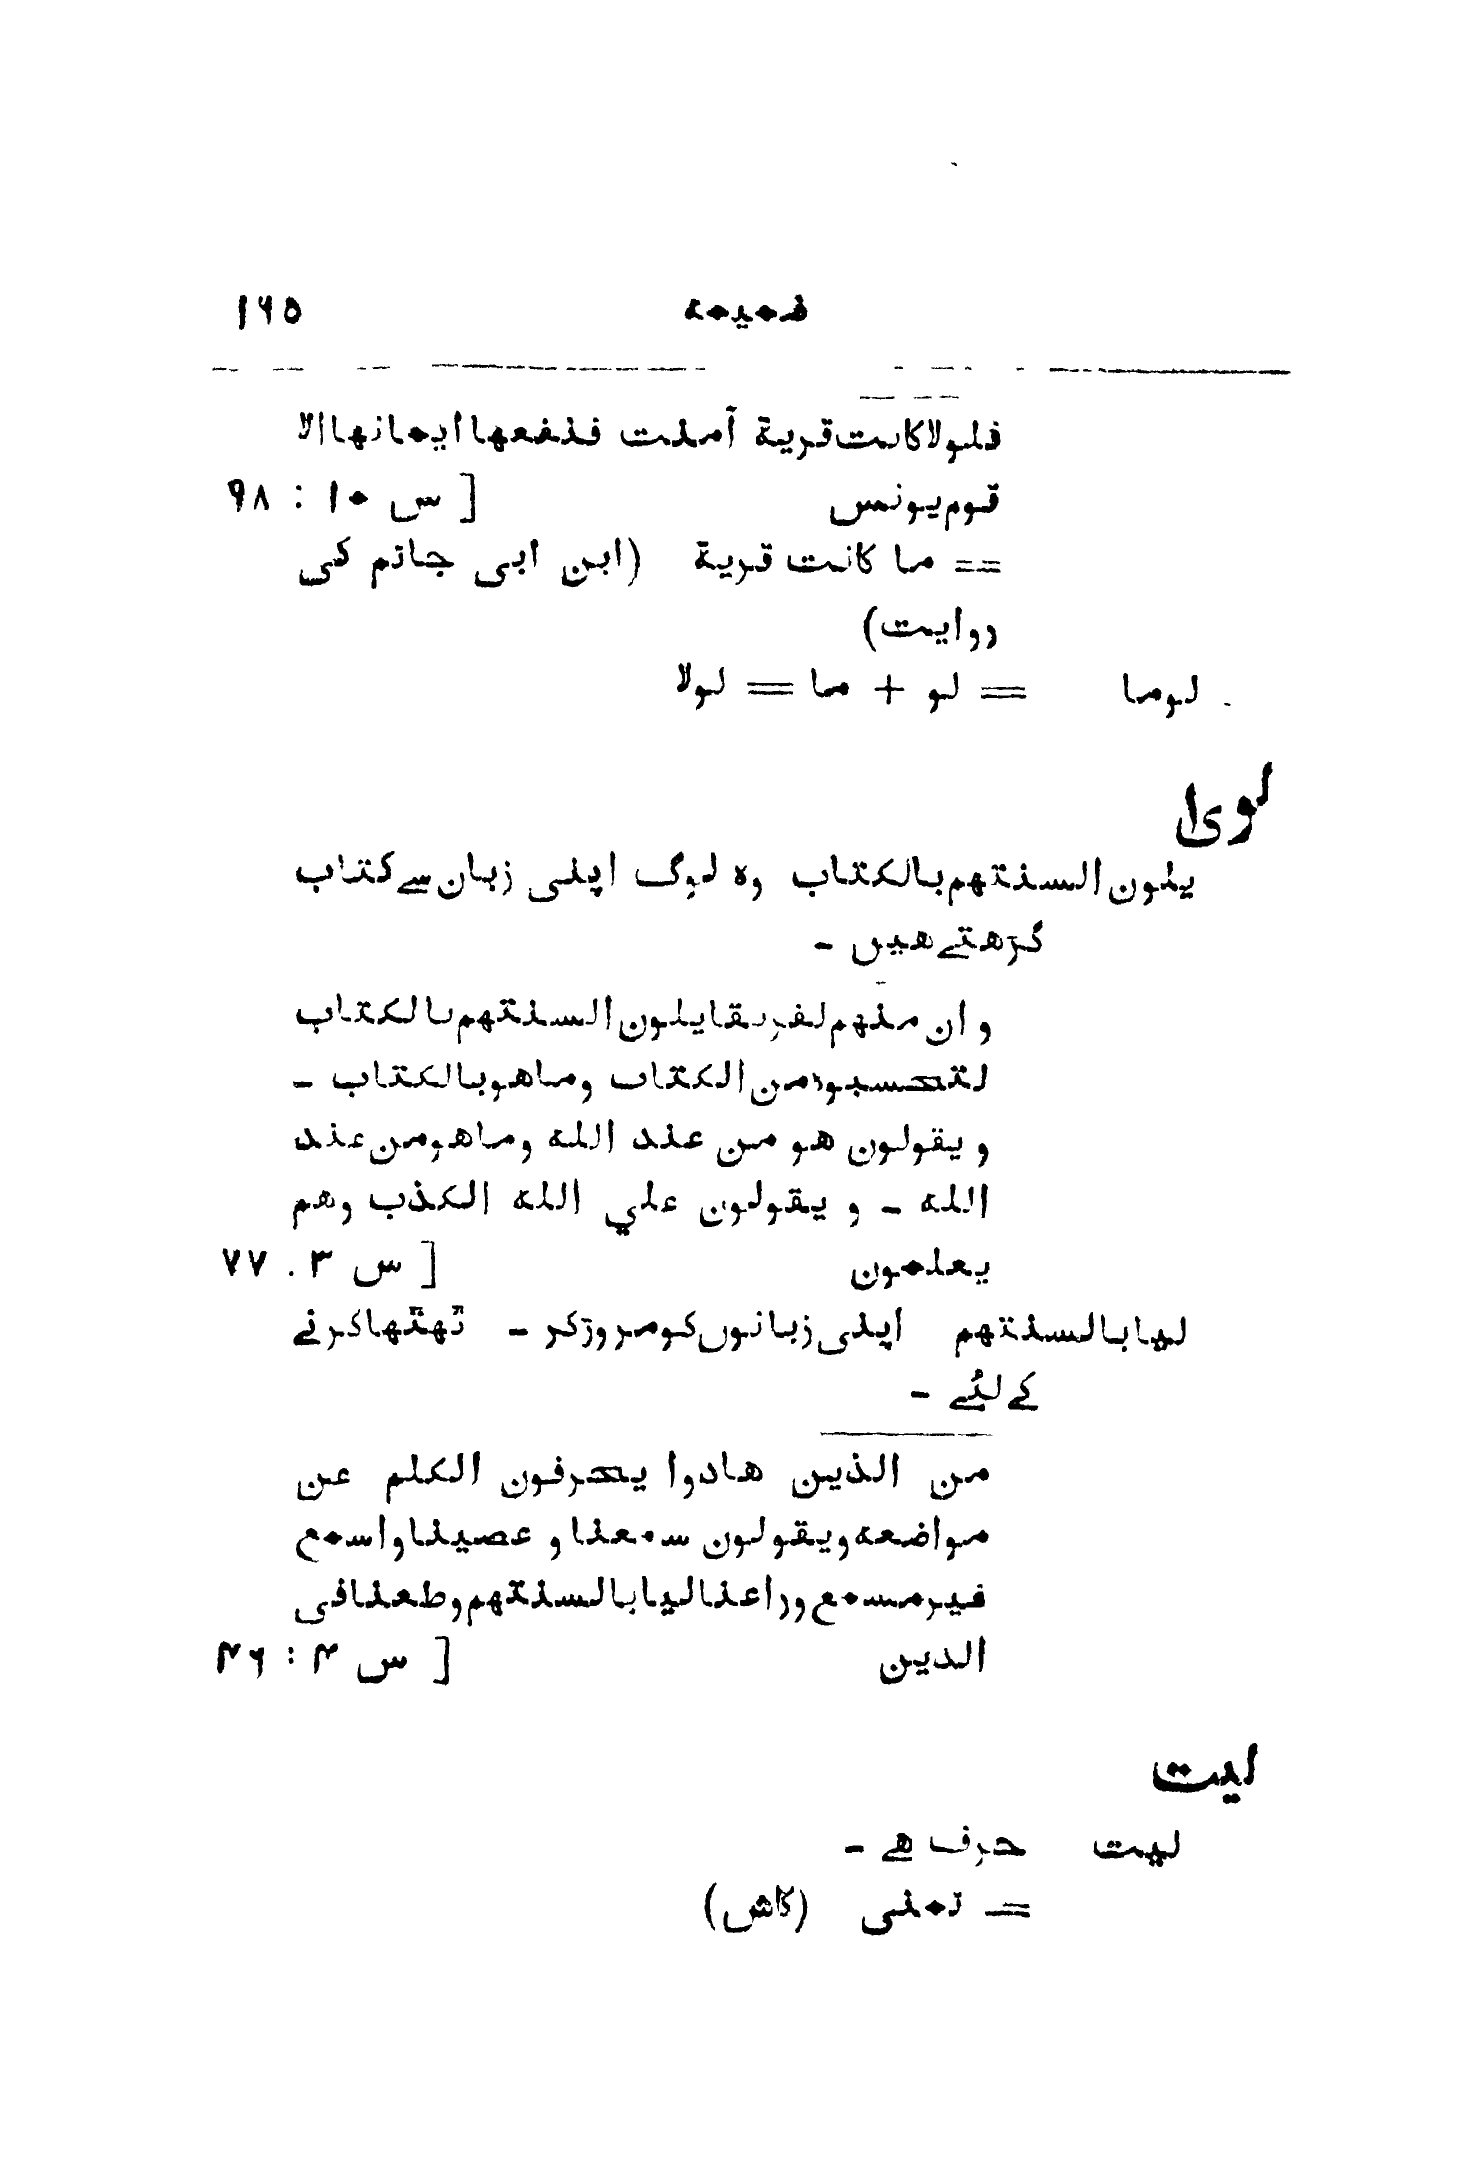 ضمیمه ۱۶۵
فلولا كانت قرية آمنت فنفعها ايمانها الا
قوم يونس [ س ۱۰ : ۹۸
== ما كانت قرية (ابن ابی حاتم کی
روایت)
لوما == لو + ما == لولا
لوی
يلون السنتهم بالكتاب وہ لوگ اپنی زبان سے کتاب
گڑھتے ھیں ـ
و ان منهم لفريقا يلون السنتهم بالكتاب
لتحسبوه من الكتاب وماهو بالكتاب ـ
و يقولون هو من عند الله وماهو من عند
الله ـ و يقولون علي الله الكذب وهم
يعلمون [ س ۳ . ۷۷
ليا بالسنتهم اپنی زبانوں کو مروڑ کر ـ ٹھٹھا کرنے
کے لئے ـ
من الذين هادوا يحرفون الكلم عن
مواضعه ويقولون سمعنا و عصينا واسمع
غير مسمع وراعنا ليا بالسنتهم وطعنا فی
الدين [ س ۴ : ۴۶
لیت
لیت حرف ھے ـ
== تمنی (کاش)